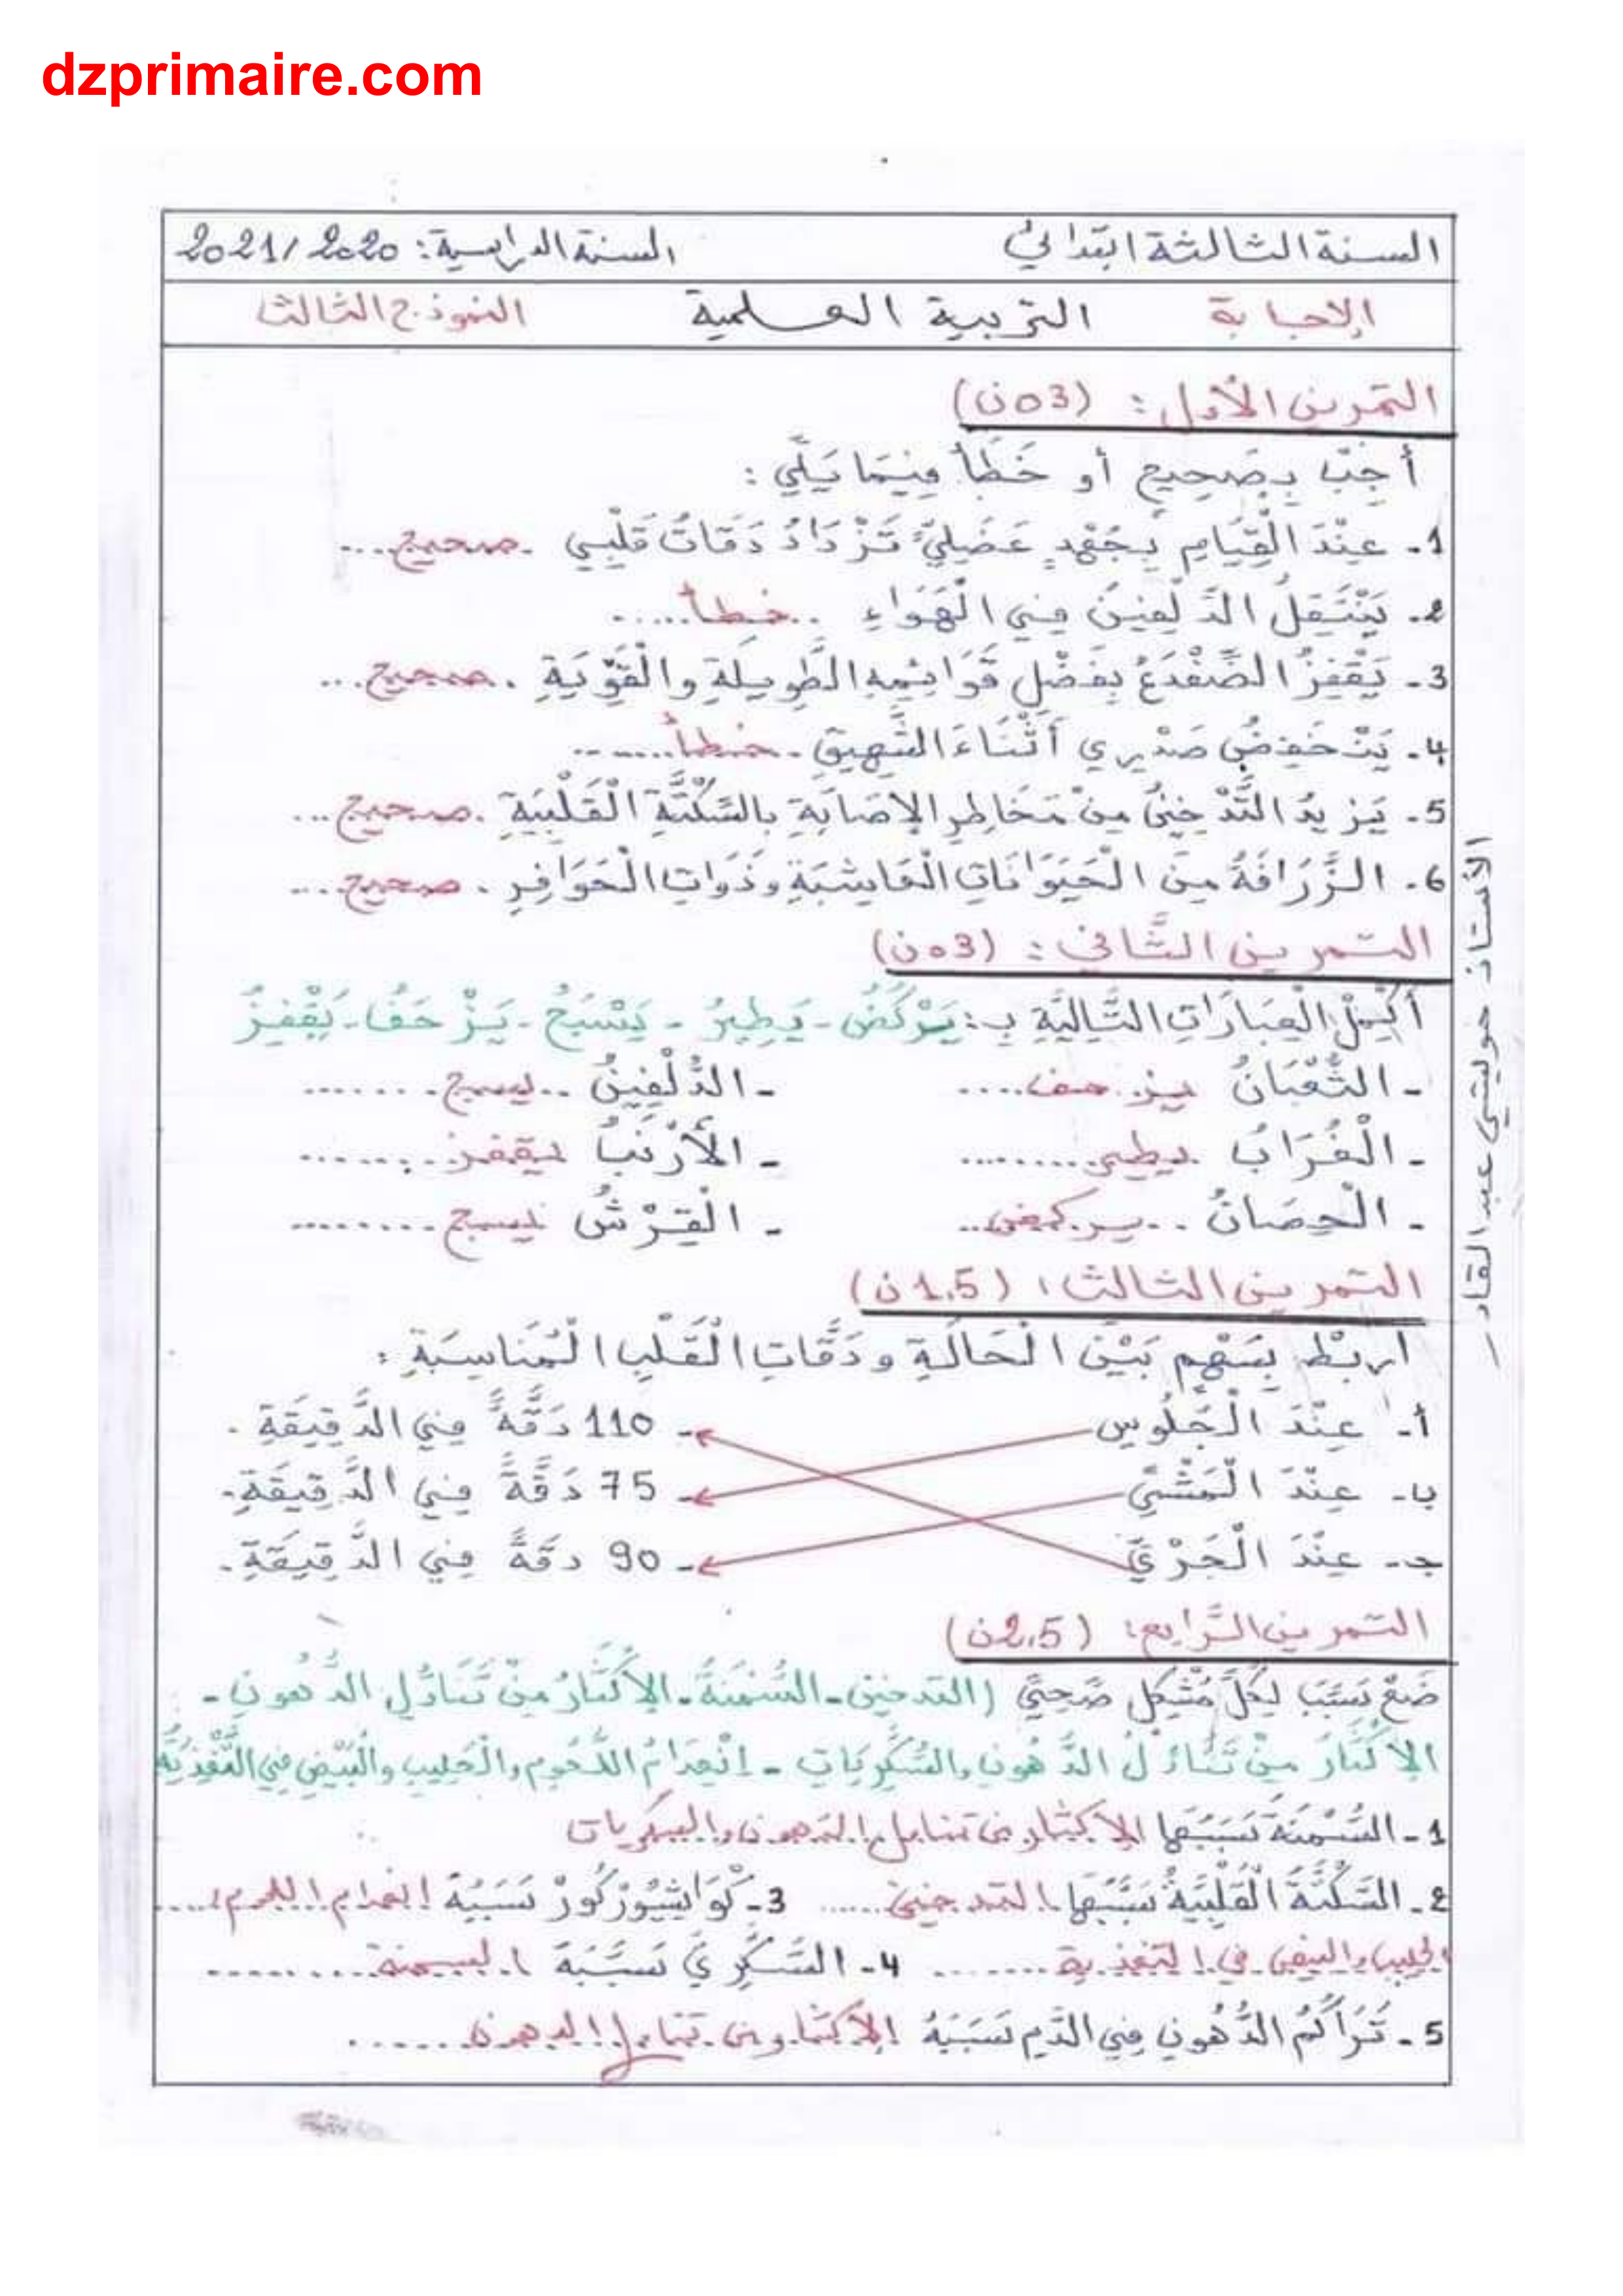 dzprimaire.com
السنة الثالثة ابتدائي السنة الدراسية: 2021/2020
الإجابة التربية العلمية النموذج الثالث
التمرين الأول: (03ن)
أَجِبْ بِصَحِيحٍ أو خَطَأ فِيمَا يَلِي:
1- عِنْدَ الْقِيَامِ بِجُهْدٍ عَضَلِيٍّ تَزْدَادُ دَقَاتُ قَلْبِي .صحيح...
2- يَنْتَقِلُ الدَّلْفِينُ فِي الْهَوَاءِ ..خطأ.....
3- يَقْفِزُ الضِّفْدَعُ بِفَضْلِ قَوَائِمِهِ الطَّوِيلَةِ والْقَوِّيَةِ .صحيح...
4- يَنْخَفِضُ صَدْرِي أَثْنَاءَ الشَّهِيقِ .خطأ.......
5- يَزِيدُ التَّدْخِينُ مِنْ مَخَاطِرِ الإِصَابَةِ بالسَّكْتَّةِ الْقَلْبِيَةِ .صحيح...
6- الزَّرَافَةُ مِنَ الْحَيَوَانَاتِ الْعَاشِبَةِ وذَوَاتِ الْحَوَافِرِ .صحيح...
التمرين الثَّاني: (03ن)
أَكْمِلْ الْعِبَارَاتِ التَّالِيَّةِ بِـ: يَرْكُضُ - يَطِيرُ - يَسْبَحُ - يَزْحَفُ - يَقْفِزُ
- الثُّعْبَانُ يزحف.... - الدُّلْفِينُ ..يسبح........
- الْغُرَابُ يطير......... - الأَرْنَبُ يقفز........
- الْحِصَانُ ..يركض.. - الْقِرْشُ يسبح.........
التمرين الثالث: (1.5ن)
اربُطْ بِسَهْمٍ بَيْنَ الْحَالَةِ ودَقَّاتِ الْقَلْبِ الْمُنَاسِبَةِ:
أ- عِنْدَ الْجُلُوسِ - 110 دَقَّةً فِي الدَّقِيقَةِ.
ب- عِنْدَ الْمَشْيِ - 75 دَقَّةً فِي الدَّقِيقَةِ.
جـ- عِنْدَ الْجَرْيِ - 90 دقةً فِي الدَّقِيقَةِ.
التمرين الرَّابع: (2.5ن)
ضَعْ سَبَبَ لِكُلِّ مُشْكِلٍ صَّحِيِّ (التدخين - السُّمْنَةُ - الإِكْثَارُ مِنْ تَنَاوُلِ الدُّهون -
الإِكْثَارُ مِنْ تَنَاوُلُ الدُّهُونِ والسُّكَّرِيَاتِ - انْعِدَامُ اللُّحُومِ والْحَلِيبِ والْبَيْضِ فِي التَّغْذِيَّةِ
1- السُّمْنَةُ سَبَبُهَا الإكثار من تناول الدهون والسكريات
2- السَّكْتَةُ الْقَلْبِيَةُ سَبَبُهَا التدخين...... 3- كْوَاشْيُورْكُورْ سَبَبُهُ انعدام اللحوم،....
الحليب والبيض في التغذية....... 4- السُّكَّرِيَّ سَبَبُهُ السمنة.........
5- تَرَاكُمُ الدُّهُونِ فِي الدَّمِ سَبَبُهُ الإكثار من تناول الدهون......
الأستاذ حويشي عبد القادر